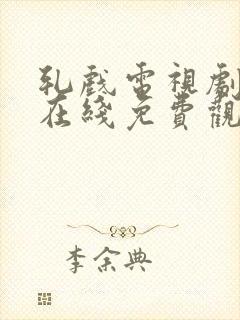 乳戲電視劇
在綫免費觀
李余典